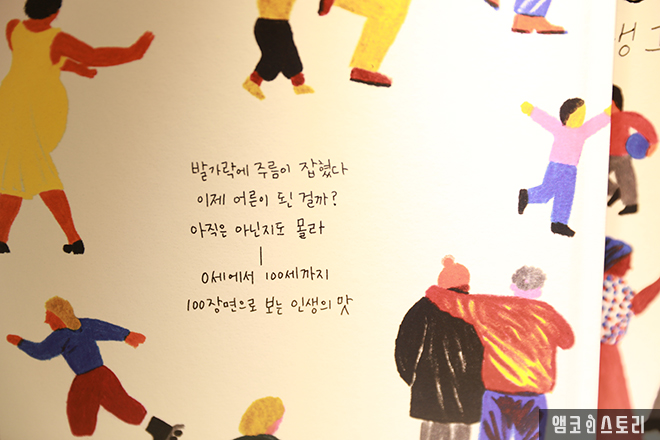 발가락에 주름이 잡혔다
이제 어른이 된 걸까?
아직은 아닌지도 몰라
0세에서 100세까지
100장면으로 보는 인생의 맛
앰코인스토리